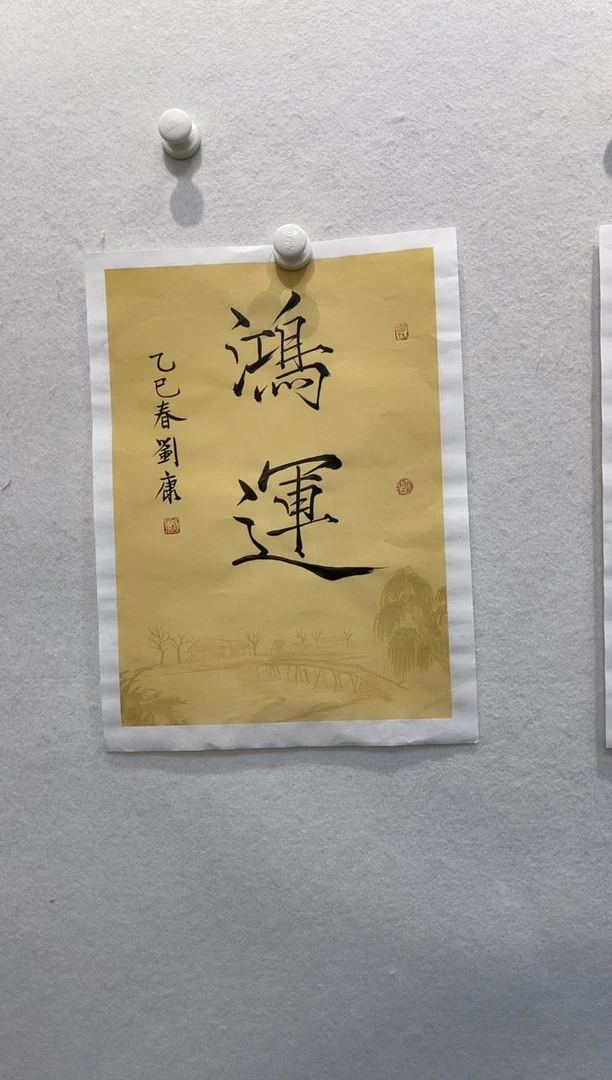 鴻運
乙巳春劉康